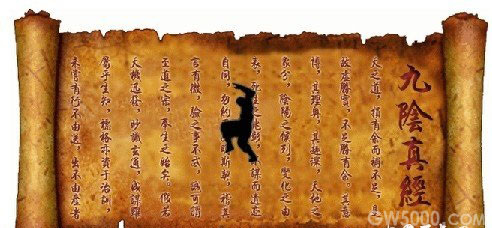 九陰真經
天之道，損有餘而補不足，是
故虛勝實，不足勝有余。其意
博，其理奧，其趣深，天地之
象分，陰陽之候列，變化之由
表，死生之兆彰，謀而遺跡
自同，勿約斯契，稽其
言有微，驗之事不忒，誠可謂
至道之宗，奉生之始矣。假若
天機迅發，妙識玄通，成謀雖
屬乎生知，標格亦資于治訓，
未嘗有行不由送，出不由產者
GW5000.com